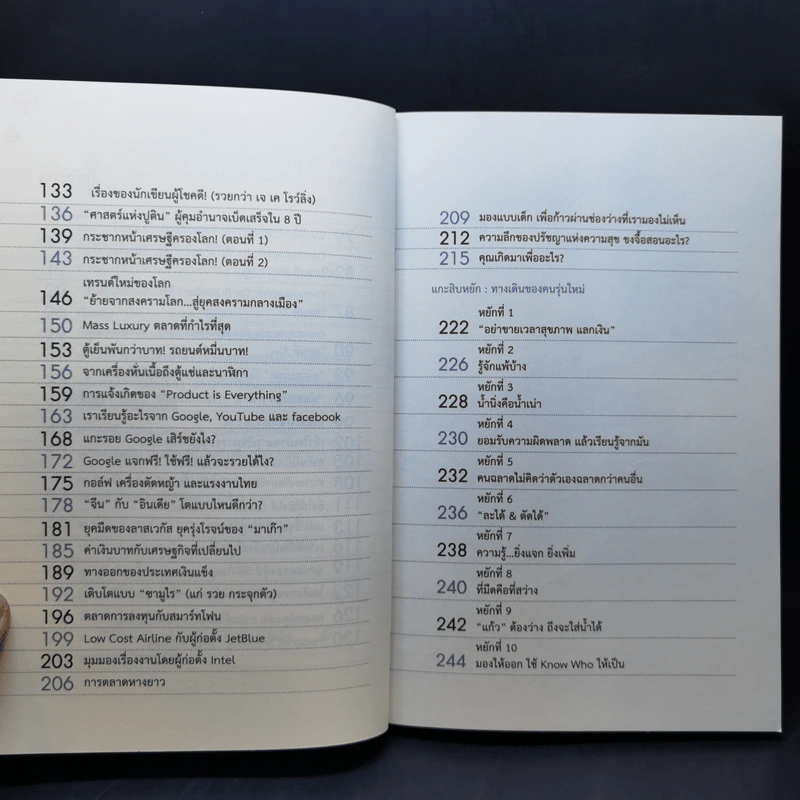 133 เรื่องของนักเขียนผู้โชคดี! (รวยกว่า เจ เค โรว์ลิ่ง)
136 “ศาสตร์แห่งปูติน” ผู้คุมอำนาจเบ็ดเสร็จใน 8 ปี
139 กระชากหน้าเศรษฐีครองโลก! (ตอนที่ 1)
143 กระชากหน้าเศรษฐีครองโลก! (ตอนที่ 2)
เทรนด์ใหม่ของโลก
146 “ย้ายจากสงครามโลก...สู่ยุคสงครามกลางเมือง”
150 Mass Luxury ตลาดที่กำไรที่สุด
153 ตู้เย็นพันกว่าบาท! รถยนต์หมื่นบาท!
156 จากเครื่องหั่นเนื้อถึงตู้แช่และนาฬิกา
159 การแจ้งเกิดของ “Product is Everything”
163 เราเรียนรู้อะไรจาก Google, YouTube และ facebook
168 แกะรอย Google เสิร์ชยังไง?
172 Google แจกฟรี! ใช้ฟรี! แล้วจะรวยได้ไง?
175 กอล์ฟ เครื่องตัดหญ้า และแรงงานไทย
178 “จีน” กับ “อินเดีย” โตแบบไหนดีกว่า?
181 ยุคมืดของลาสเวกัส ยุครุ่งโรจน์ของ “มาเก๊า”
185 ค่าเงินบาทกับเศรษฐกิจที่เปลี่ยนไป
189 ทางออกของประเทศเงินแข็ง
192 เติบโตแบบ “ซามูไร” (แก่ รวย กระจุกตัว)
196 ตลาดการลงทุนกับสมาร์ทโฟน
199 Low Cost Airline กับผู้ก่อตั้ง JetBlue
203 มุมมองเรื่องงานโดยผู้ก่อตั้ง Intel
206 การตลาดหางยาว
209 มองแบบเด็ก เพื่อก้าวผ่านช่องว่างที่เรามองไม่เห็น
212 ความลึกของปรัชญาแห่งความสุข ขงจื้อสอนอะไร?
215 คุณเกิดมาเพื่ออะไร?
แกะสิบหยัก : ทางเดินของคนรุ่นใหม่
หยักที่ 1
222 “อย่าขายเวลาสุขภาพ แลกเงิน”
หยักที่ 2
226 รู้จักแพ้บ้าง
หยักที่ 3
228 น้ำนิ่งคือน้ำเน่า
หยักที่ 4
230 ยอมรับความผิดพลาด แล้วเรียนรู้จากมัน
หยักที่ 5
232 คนฉลาดไม่คิดว่าตัวเองฉลาดกว่าคนอื่น
หยักที่ 6
236 “ละได้ & ตัดได้”
หยักที่ 7
238 ความรู้...ยิ่งแจก ยิ่งเพิ่ม
หยักที่ 8
240 ที่มืดคือที่สว่าง
หยักที่ 9
242 “แก้ว” ต้องว่าง ถึงจะใส่น้ำได้
หยักที่ 10
244 มองให้ออก ใช้ Know Who ให้เป็น